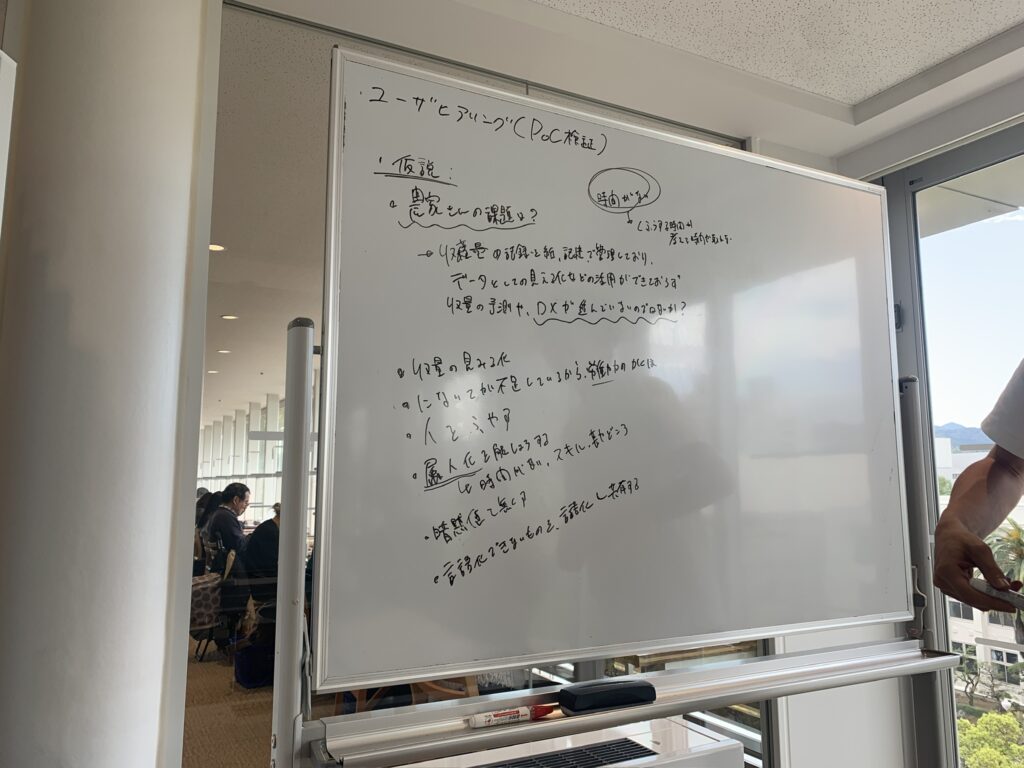 ・ユーザヒアリング(PoC検証)
・仮説:
農家さんの課題は?
時間がない
→収穫量の記録を紙、記憶で管理しており、
データとしての見える化などの活用ができておらず
収量の予測や、DXが進んでいないのではないか?
収量の見える化
にないてが不足しているから、労働力の
・人をふやす
属人化を脱しようする
時間がない、スキル
・暗黙値を無くす
言語化できないものを、言語化し共有する